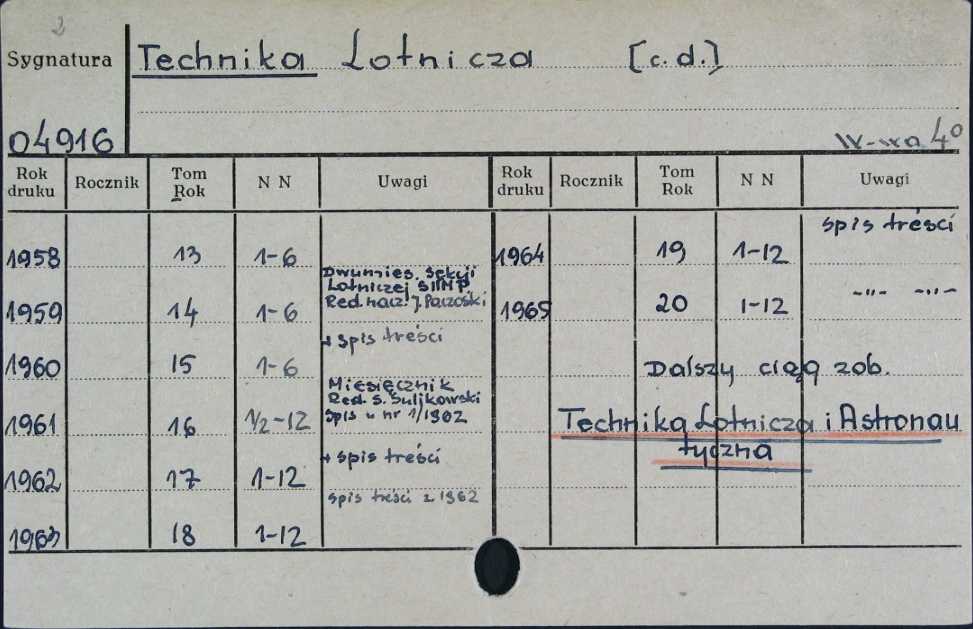 2
Sygnatura Technika Lotnicza [c.d.]
04916 W-wa 4°
Rok druku Rocznik Tom Rok N N Uwagi Rok druku Rocznik Tom Rok N N Uwagi
spis treści
1958 13 1-6 1964 19 1-12
Dwumies. Sekcji
Lotniczej SIMP
Red. nacz. J. Paczoski
1959 14 1-6 1965 20 1-12 -"- -"-
+ spis treści
1960 15 1-6 Dalszy ciąg zob.
Miesięcznik
Red. S. Sulikowski
Spis w nr 1/1962
1961 16 1/2-12 Technika Lotnicza i Astronau
tyczna
+ spis treści
1962 17 1-12
spis treści z 1962
1963 18 1-12